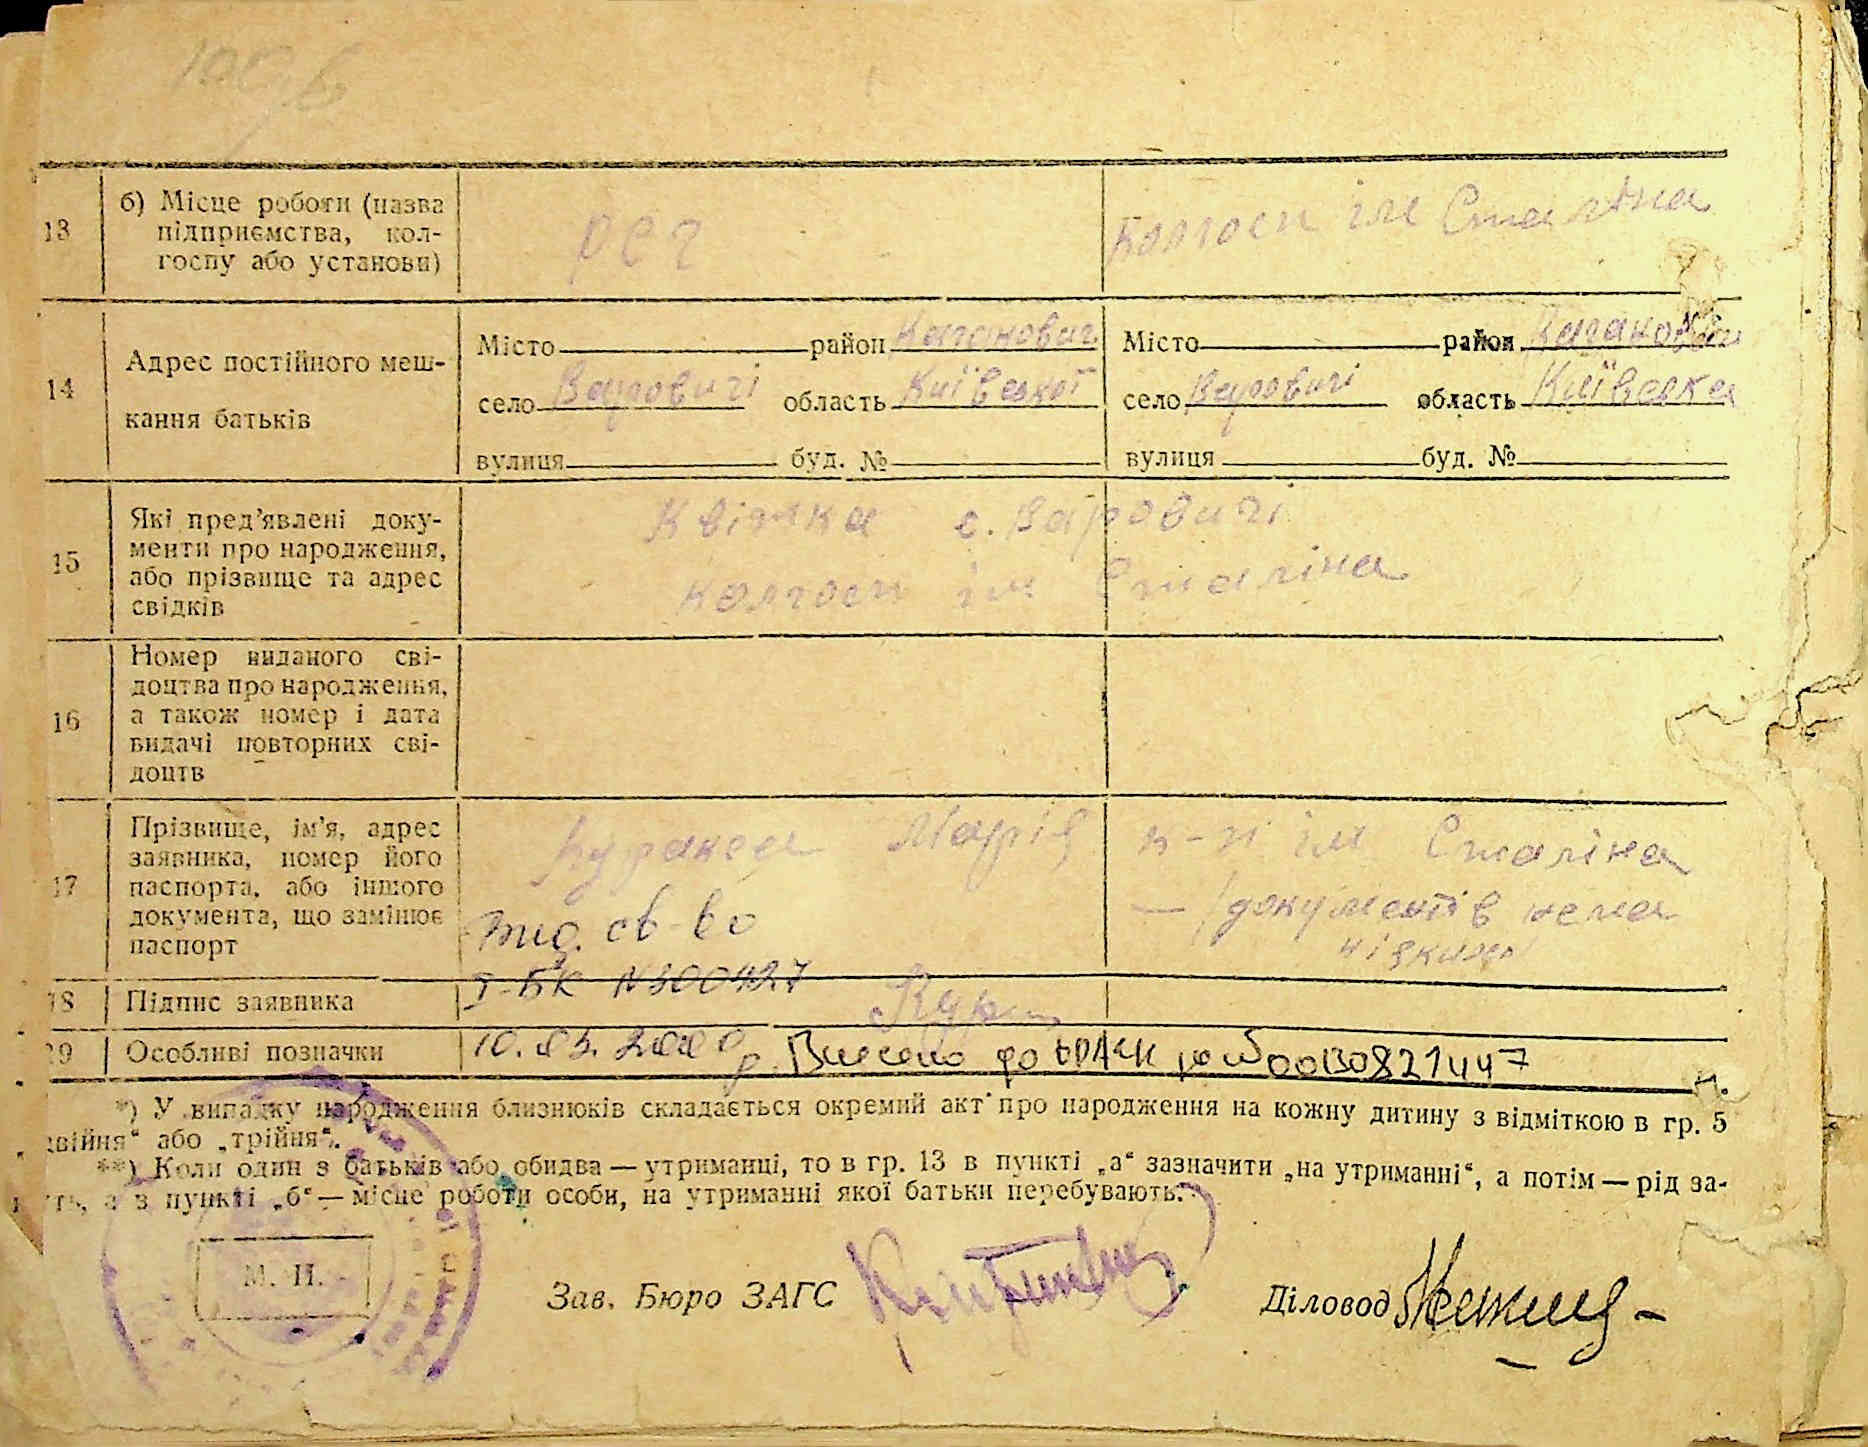 13
б) Місце роботи (назва
підприємства, кол-
госпу або установи)
РСЧ
Колгосп ім Сталіна
14
Адрес постійного меш-
кання батьків
Місто район Каганович
село Варовичі область Київської
вулиця буд. №
Місто район Каганович
село Варовичі область Київська
вулиця буд. №
15
Які пред’явлені доку-
менти про народження,
або прізвище та адрес
свідків
Квітка с. Варовичі
колгосп ім Сталіна
16
Номер виданого сві-
доцтва про народження,
а також номер і дата
видачі повторних сві-
доцтв
17
Прізвище, ім’я, адрес
заявника, номер його
паспорта, або іншого
документа, що замінює
паспорт
Марія
к-п ім Сталіна
— документів нема
ніяких
св-во
І-БК №300427
18
Підпис заявника
19
Особливі позначки
10.03.2020 р. Внесено до 00130821447
*) У випадку народження близнюків складається окремий акт про народження на кожну дитину з відміткою в гр. 5
двійня“ або „трійня“.
**) Коли один з батьків або обидва — утриманці, то в гр. 13 в пункті „а“ зазначити „на утриманні“, а потім — рід за-
в пункті „б“ — місце роботи особи, на утриманні якої батьки перебувають.
М. П.
Зав. Бюро ЗАГС
Діловод